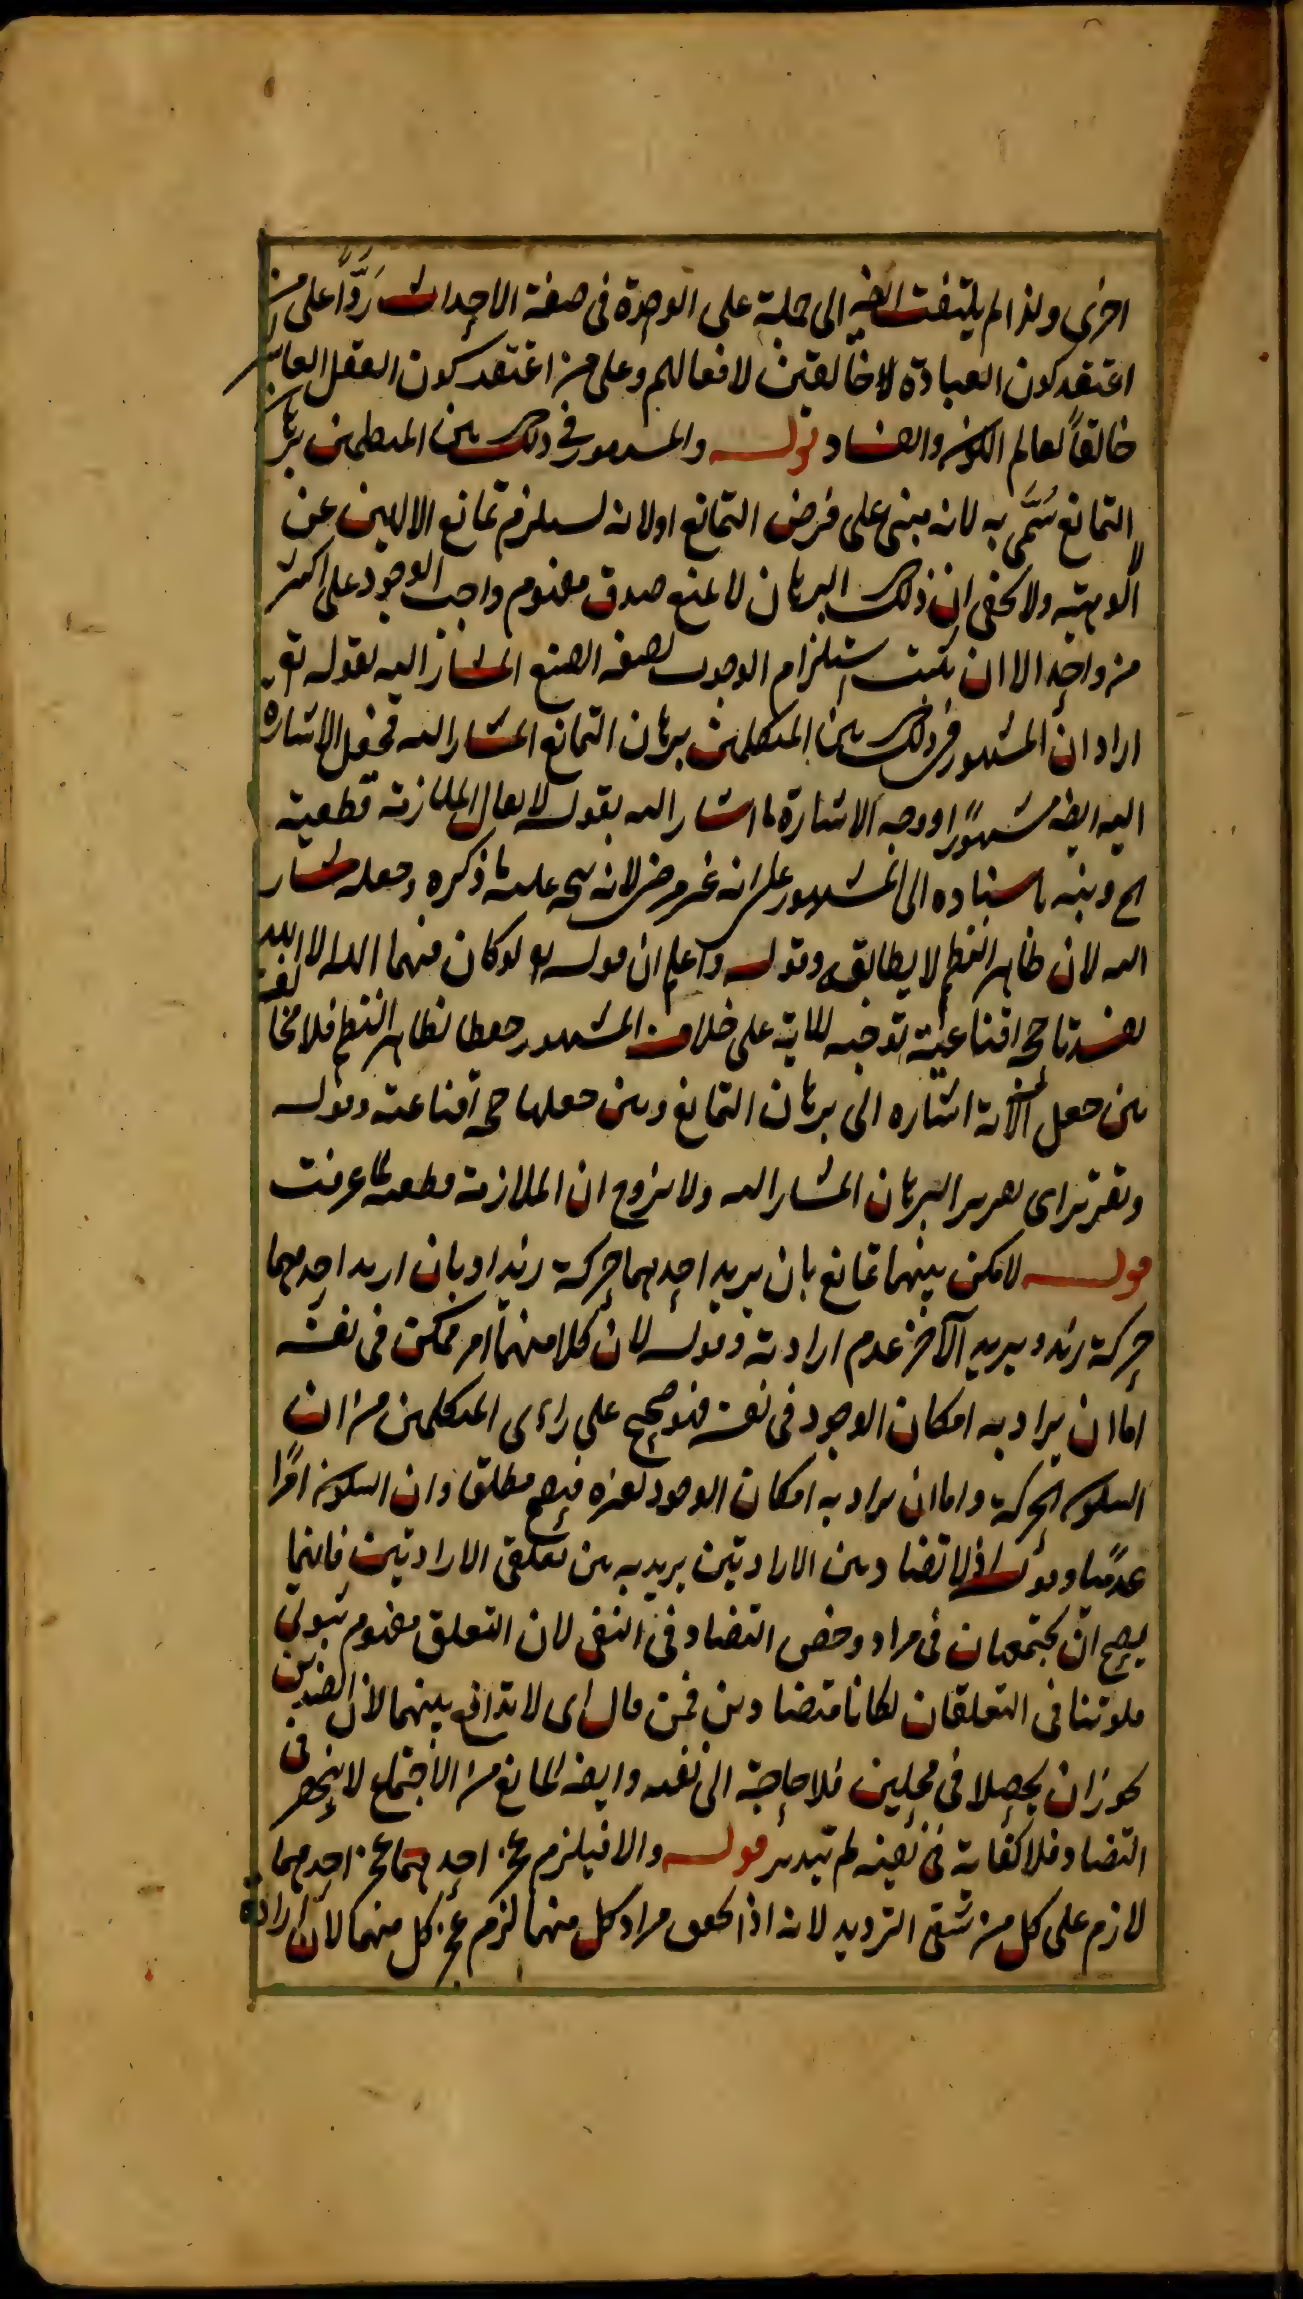 اخرى ولذا لم يلتفت الخيالى الى حمله على الوحدة فى صفة الاحداث رَدّاً على من
اعتقد كون العباد خالقين لافعالهم وعلى من اعتقد كون العقل العاشر
خالقاً لعالم الكون والفساد قوله والمشهور فى ذلك بين المتكلمين برهان
التمانع سُمّى به لانه مبنى على فرض التمانع اولانه يستلزم تمانع الالهين عن
الالوهية ولا يخفى ان ذلك البرهان لا يمنع صدق مفهوم واجب الوجود على اكثر
من واحد الا ان يثبت استلزام الوجوب لصفة الصنع المشار اليه بقوله تع
اراد ان المشهور فى ذلك بين المتكلمين برهان التمانع المشار اليه فجعل الاشارة
اليه ايضه مشهوراً ووجه الاشارة ما اشار اليه بقوله لا يقال الملازمة قطعية
الخ ونبه باسناده الى المشهور على انه غير مرضى لانه يتجه عليه ما ذكره وجعله مشار
اليه لان ظاهر النظم لا يطابقه وقوله واعلم ان قوله لو كان فيهما الهة الا الله
لفسدتا حجة اقناعية توجيه للاية على خلاف المشهور حفظا لظاهر النظم فلا مخالفة
بين جعل الاية اشاره الى برهان التمانع وبين جعلها حجة اقناعية وقوله
وتقريره اى تقرير البرهان المشار اليه ولا يروج ان الملازمة قطعية لما عرفت
قوله لامكن بينهما تمانع بان يريد احدهما حركة زيد او بان اريد احدهما
حركة زيد ويريد الآخر عدم ارادته وقوله لان كلا منهما امر ممكن فى نفسه
اما ان يراد به امكان الوجود فى نفسه فهو صحيح على راى المتكلمين من ان
السكون كالحركة واما ان يراد به امكان الوجود لغيره فيصح مطلقا وان السكون امرًا
عدميًا وقوله اذ لا تضاد بين الارادتين يريد به بين تعلقى الارادتين فانهما
يصح ان يجتمعان فى مراد وخص التضاد فى النفى لان التعلق مفهوم ثبوتى
فلو تنافى التعلقان لكانا متضادين فمن قال اى لا تدافع بينهما لان الضدين
يجوز ان يحصلا فى محلين فلا حاجة الى نفيه وايضه المانع من الاجتماع لا ينحصر فى
التضاد فلا كفاية فى نفيه لم يتدبر قوله والا فيلزم عجز احدهما عجز احدهما
لازم على كل من شقى الترديد لانه اذا تحقق مراد كل منهما لزم عجز كل منهما لان ارادة